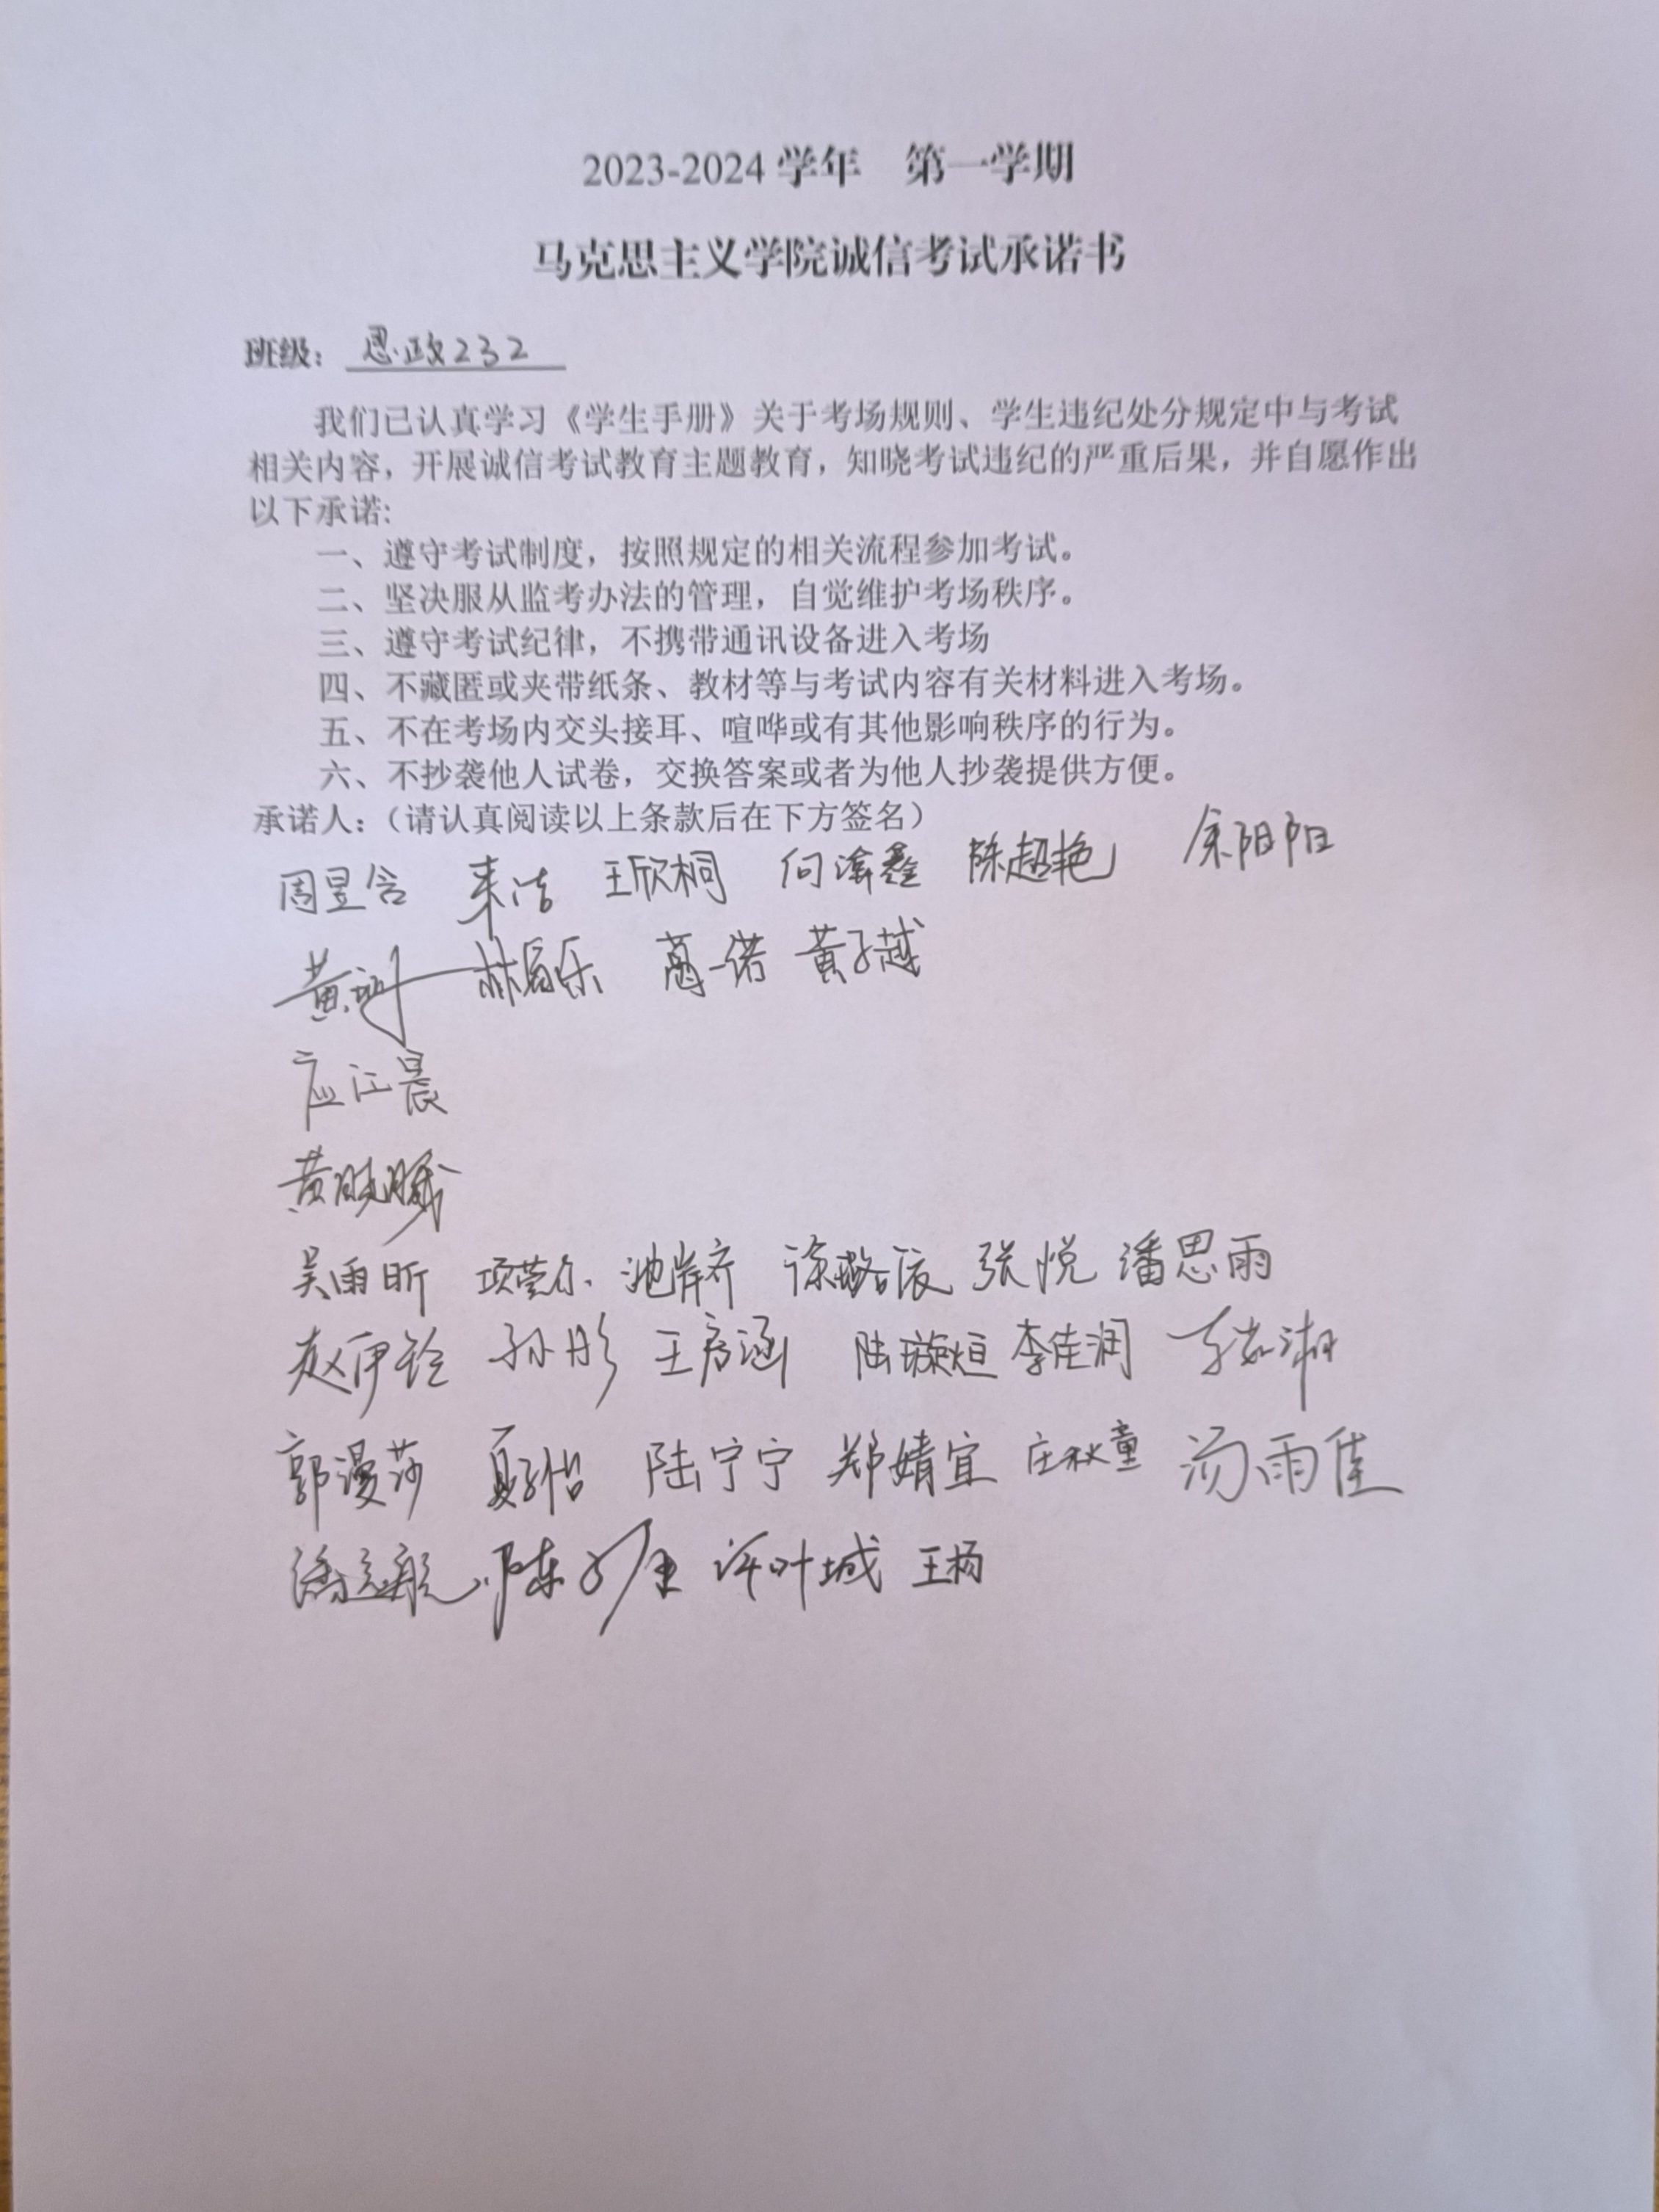 2023-2024 学年 第一学期
马克思主义学院诚信考试承诺书
班级：思政232
我们已认真学习《学生手册》关于考场规则、学生违纪处分规定中与考试
相关内容，开展诚信考试教育主题教育，知晓考试违纪的严重后果，并自愿作出
以下承诺:
一、遵守考试制度，按照规定的相关流程参加考试。
二、坚决服从监考办法的管理，自觉维护考场秩序。
三、遵守考试纪律，不携带通讯设备进入考场
四、不藏匿或夹带纸条、教材等与考试内容有关材料进入考场。
五、不在考场内交头接耳、喧哗或有其他影响秩序的行为。
六、不抄袭他人试卷，交换答案或者为他人抄袭提供方便。
承诺人：（请认真阅读以上条款后在下方签名）
周昱含 来洁 王欣桐 陈超艳 余阳阳
葛一诺 黄子越
应江晨
吴雨昕 池岸齐 张悦 潘思雨
赵伊铃 孙彤 王彦涵 陆璇烜 李佳润
郭漫莎 夏子怡 陆宁宁 郑婧宜 庄秋童 汤雨佳
许叶城 王杨